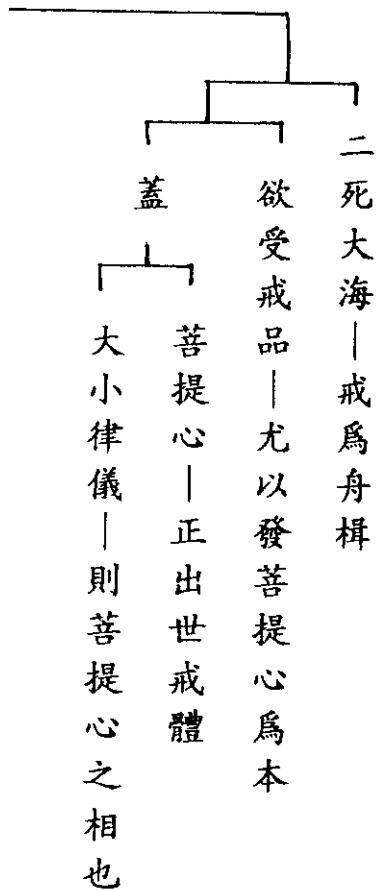 二死大海—戒爲舟楫
欲受戒品—尤以發菩提心爲本
蓋
菩提心—正出世戒體
大小律儀—則菩提心之相也